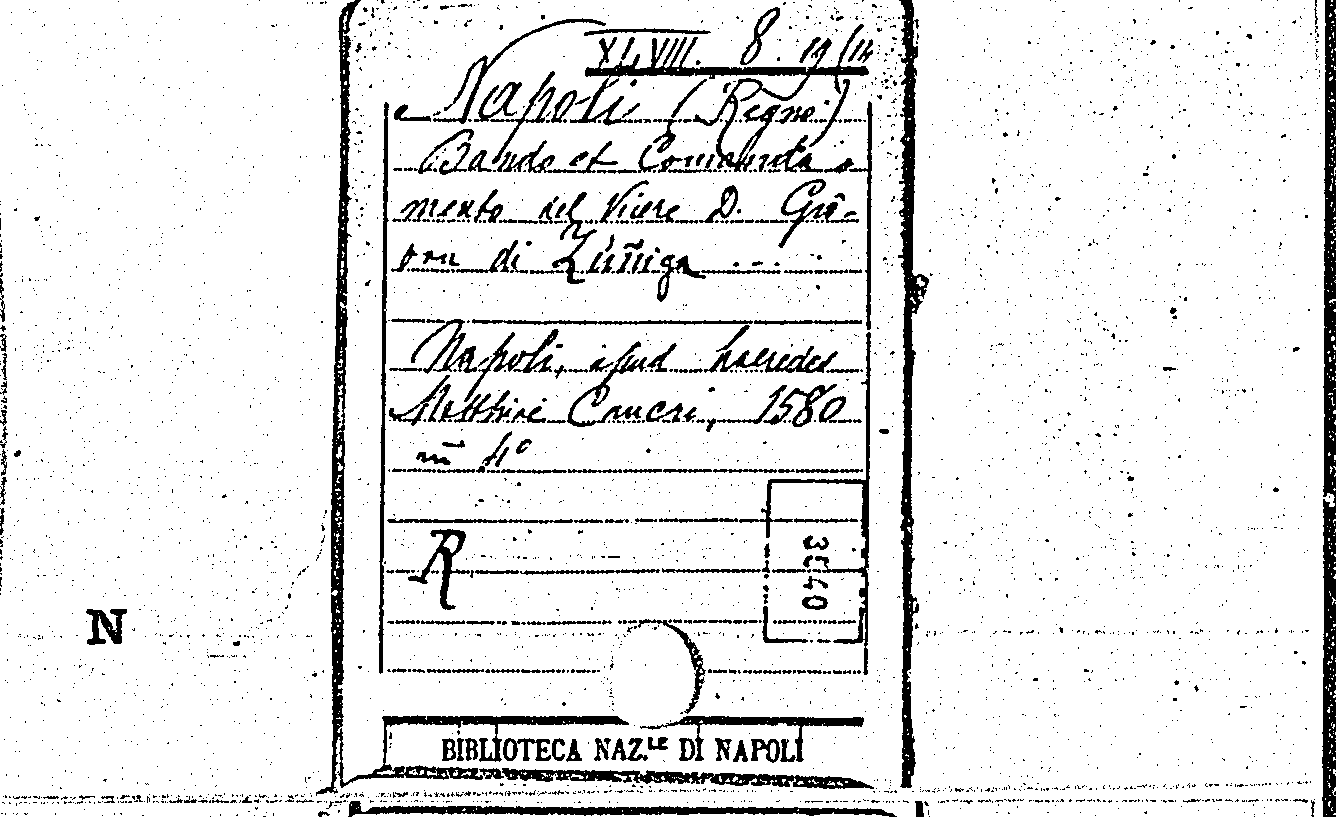 XLVIII. 8. 19/14
Napoli (Regno)
Bando et Comanda
mento del Vicere D. Gio-
di Zúñiga ...
Napoli, apud haeredes
Matthiae Cancri, 1580
in 4°
R
3040
N
BIBLIOTECA NAZ.LE DI NAPOLI